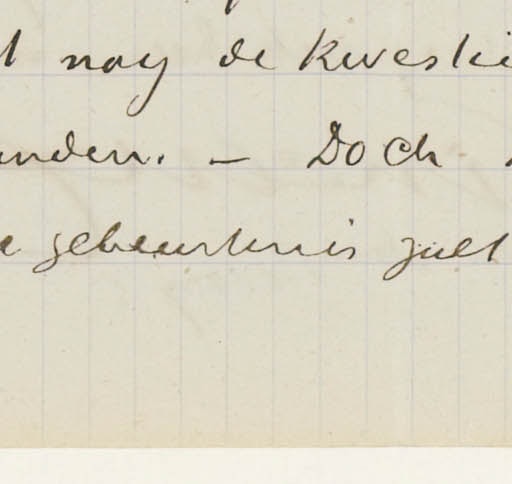 nog de Kwesti
anden. — Doch
gebeurtenis zult